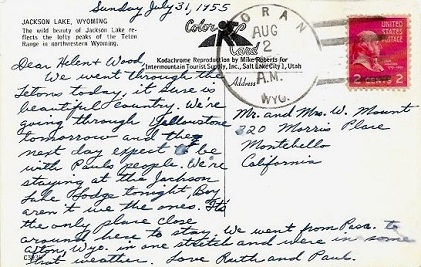 Sunday July 31, 1955
JACKSON LAKE, WYOMING
The wild beauty of Jackson Lake re-
flects the lofty peaks of the Teton
Range in northwestern Wyoming.
Dear Helen & Wood,
We went through the
Tetons today, it sure is
beautiful country. We're
going through Yellowstone
tomorrow and the
next day expect to be
with Pauls people. We're
staying at the Jackson
Lake Lodge tonight Boy
aren't we the ones. It's
the only place close
around here to stay. We went from Pasa. to
Wyo. in one stretch and were in some
hot weather. Love Ruth and Paul.
Color
Card
Kodachrome Reproduction by Mike Roberts for
Intermountain Tourist Supply, Inc., Salt Lake City 1, Utah
Address
MORAN
AUG
2
A.M.
WYO.
UNITED STATES
POSTAGE
2 CENTS 2
Mr. and Mrs. W. Mount
320 Morris Place
Montebello
California